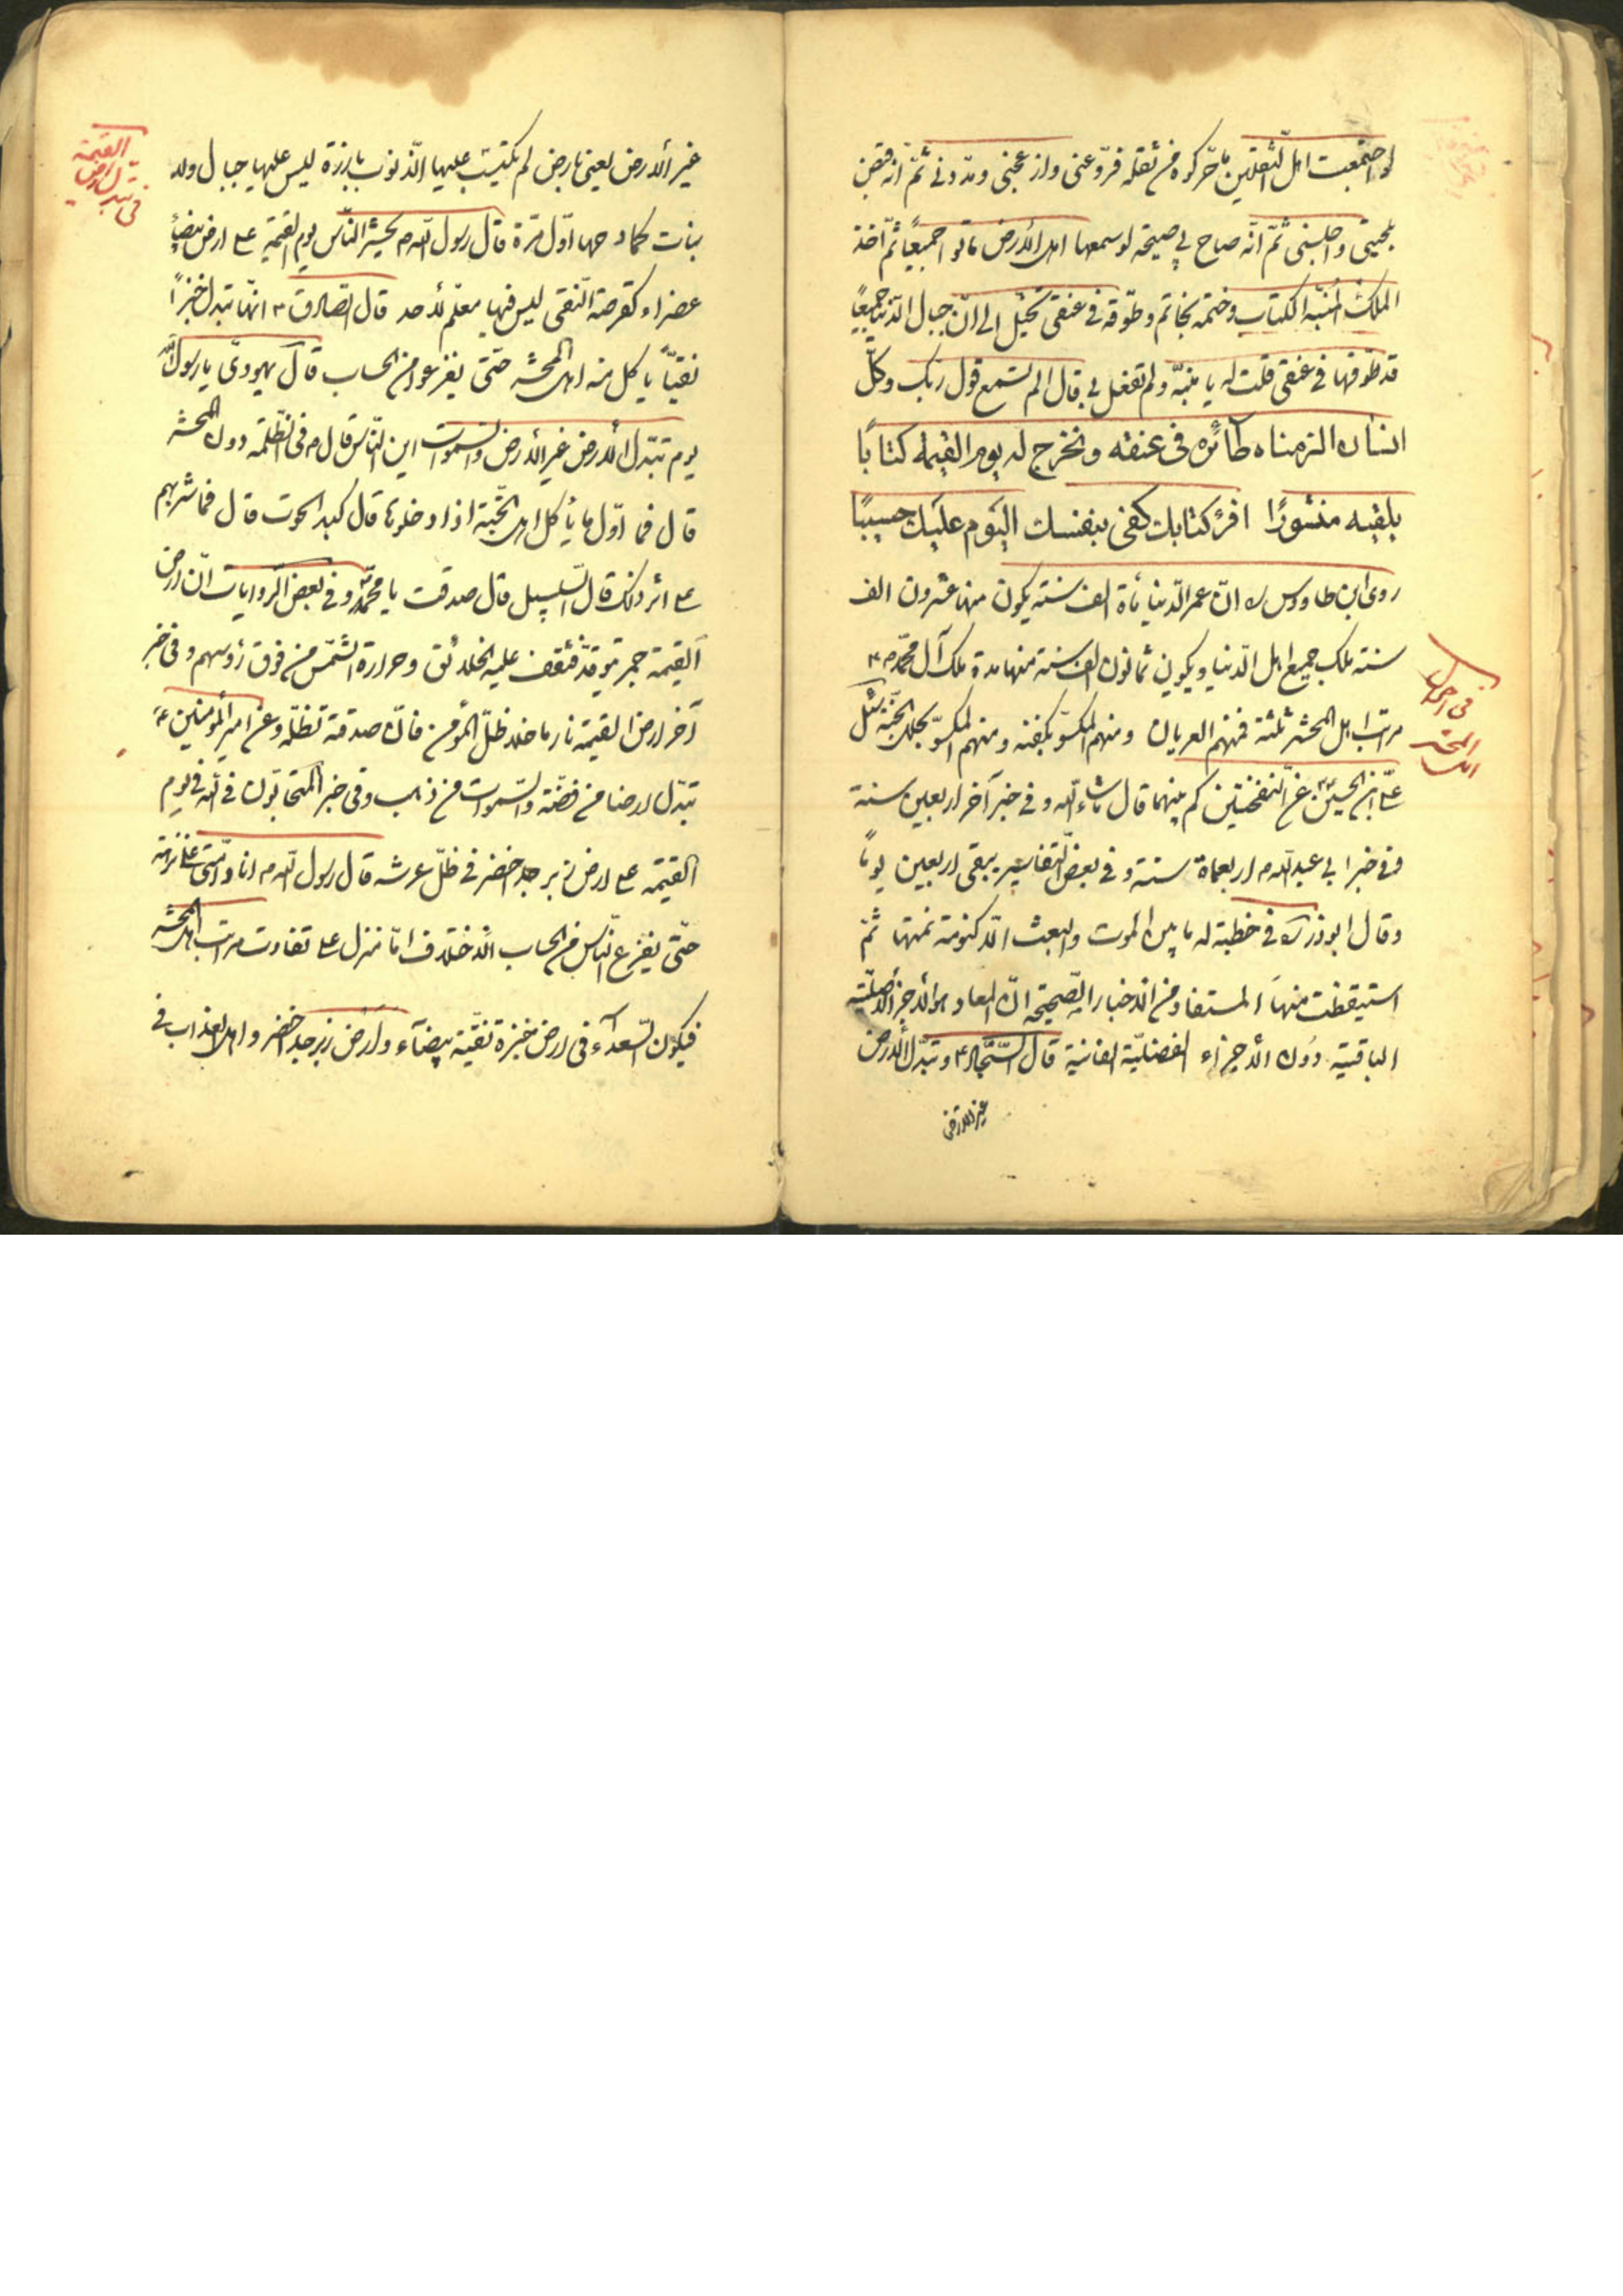 لو اجتمعت اهل الثقلين ما حرّكوه من ثقله فروّعنى وازعجنى ومدّدنى ثمّ انّه قبض
بلحيتى واجلسنى ثمّ انّه صاح بى صيحة لو سمعها اهل الأرض ماتوا جميعًا ثمّ اخذ
الملك المنبّه الكتاب وختمه بخاتم وطوّقه فى عنقى تخيّل الى انّ جبال الدّنيا جميعًا
قد طوّقها فى عنقى قلت له يا منبّه ولم تفعل بى قال الم تسمع قول ربّك وكلّ
انسان الزمناه طآئره فى عنقه ونخرج له يوم القيمة كتابًا
يلقيه منشورًا اقرء كتابك كفى بنفسك اليوم عليك حسيبًا
روى ابن طاووس ره انّ عمر الدّنيا مأة الف سنة يكون منها عشرون الف
سنة ملك جميع اهل الدّنيا ويكون ثمانون الف سنة منها مدة ملك آل محمّد ص
مراتب اهل المحشر ثلثة فمنهم العريان ومنهم المكسوّ بكفنه ومنهم المكسوّ بحلل الجنّة سئل
على ابن الحسين عن النفختين كم بينهما قال ما شاء الله وفى خبر آخر اربعين سنة
وفى خبر ابى عبد الله م اربعمأة سنة وفى بعض التفاسير يبقى اربعين يومًا
وقال ابوذر ره فى خطبة له ما بين الموت والبعث الّا كنومة نمتها ثمّ
استيقظت منها المستفاد من الاخبار الصّحيحة انّ المعاد هو الأجزاء الأصليّة
الباقية دون الأجزاء الفضليّة الفانية قال السّجّاد ع وتبدّل الأرض
غير الارض
فى احوال
اهل المحشر
غير الأرض يعنى بارض لم يكتسب عليها الذّنوب بارزة ليس عليها جبال ولا
نبات كما دحيها اوّل مرّة قال رسول الله م يحشر النّاس يوم القيمة على ارض بيضآء
عفراء كقرصة النّقى ليس فيها معلم لأحد قال الصّادق ع انّها تبدل خبزًا
نقيّاً يأكل منه اهل المحشر حتّى يفرغوا من الحساب قال يهودىّ يا رسول الله
يوم تبدّل الأرض غير الأرض والسّموات اين النّاس قال م فى الظّلمة دون المحشر
قال فما اوّل ما يأكل اهل الجنّة اذا دخلوها قال كبد الحوت قال فما شربهم
على اثر ذلك قال السّلسبيل قال صدقت يا محمّد وفى بعض الرّوايات انّ ارض
القيمة جمر توقد فتقف عليه الخلائق وحرارة الشّمس من فوق رؤسهم وفى خبر
آخر ارض القيمة نار ما خلا ظلّ المؤمن فانّ صدقته تظلّه وعن امير المؤمنين ع
تبدّل ارضا من فضّة والسّموات من ذهب وفى خبر المتحابّون فى الله فى يوم
القيمة على ارض زبرجد اخضر فى ظلّ عرشه قال رسول الله م انا وامّتى على ترمة
حتّى يفرغ النّاس من الحساب الاختلاف امّا منزل على تفاوت مراتب اهل المحشر
فيكون السّعدآء فى ارض خبزة نقيّة بيضآء وارض زبرجد اخضر واهل العذاب فى
القيمة
فى تبدل ارض